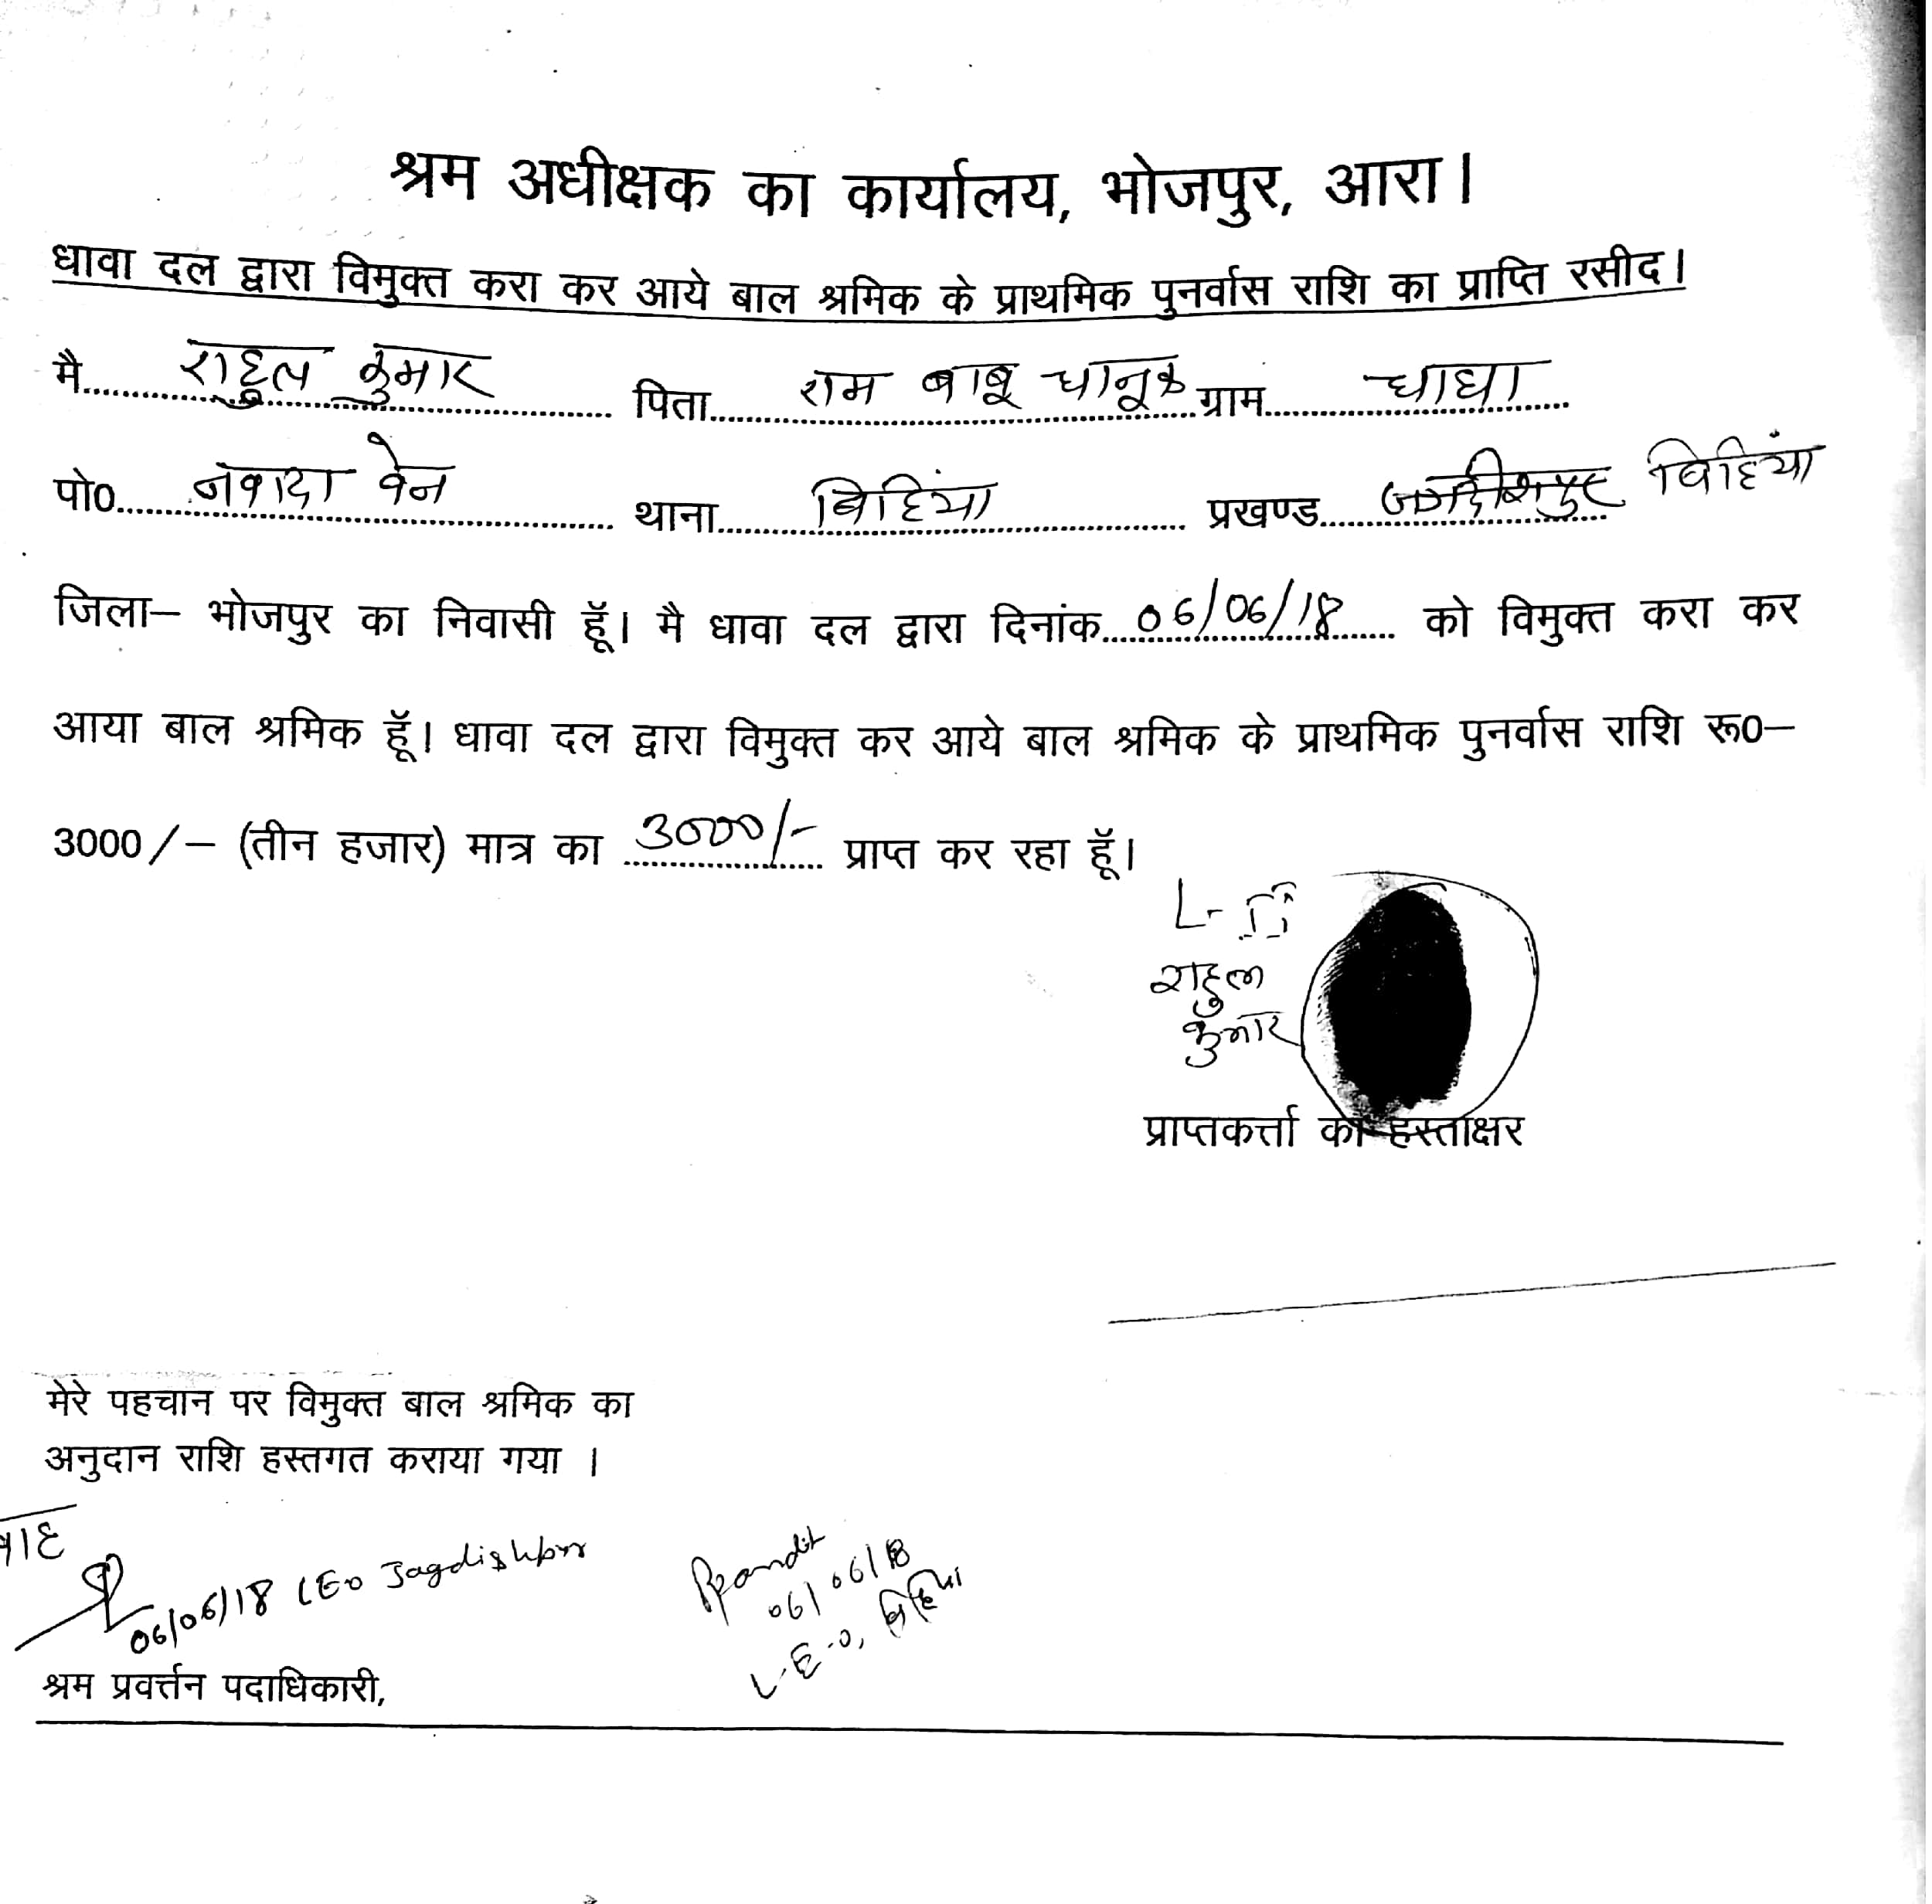 श्रम अधीक्षक का कार्यालय, भोजपुर, आरा।
धावा दल द्वारा विमुक्त करा कर आये बाल श्रमिक के प्राथमिक पुनर्वास राशि का प्राप्ति रसीद।
मै राहुल कुमार पिता राम बाबू धानूक ग्राम घाघा
पो0 नवादा वेन थाना बिहिंया प्रखण्ड जगदीशपुर बिहिंया
जिला– भोजपुर का निवासी हूँ। मै धावा दल द्वारा दिनांक 06/06/18 को विमुक्त करा कर
आया बाल श्रमिक हूँ। धावा दल द्वारा विमुक्त कर आये बाल श्रमिक के प्राथमिक पुनर्वास राशि रू0–
3000/– (तीन हजार) मात्र का 3000/- प्राप्त कर रहा हूँ।
राहुल
कुमार
प्राप्तकर्त्ता का हस्ताक्षर
मेरे पहचान पर विमुक्त बाल श्रमिक का
अनुदान राशि हस्तगत कराया गया ।
06/06/18 LEO Jagdishpur
06/06/18
L.E.O, बिहिया
श्रम प्रवर्त्तन पदाधिकारी,